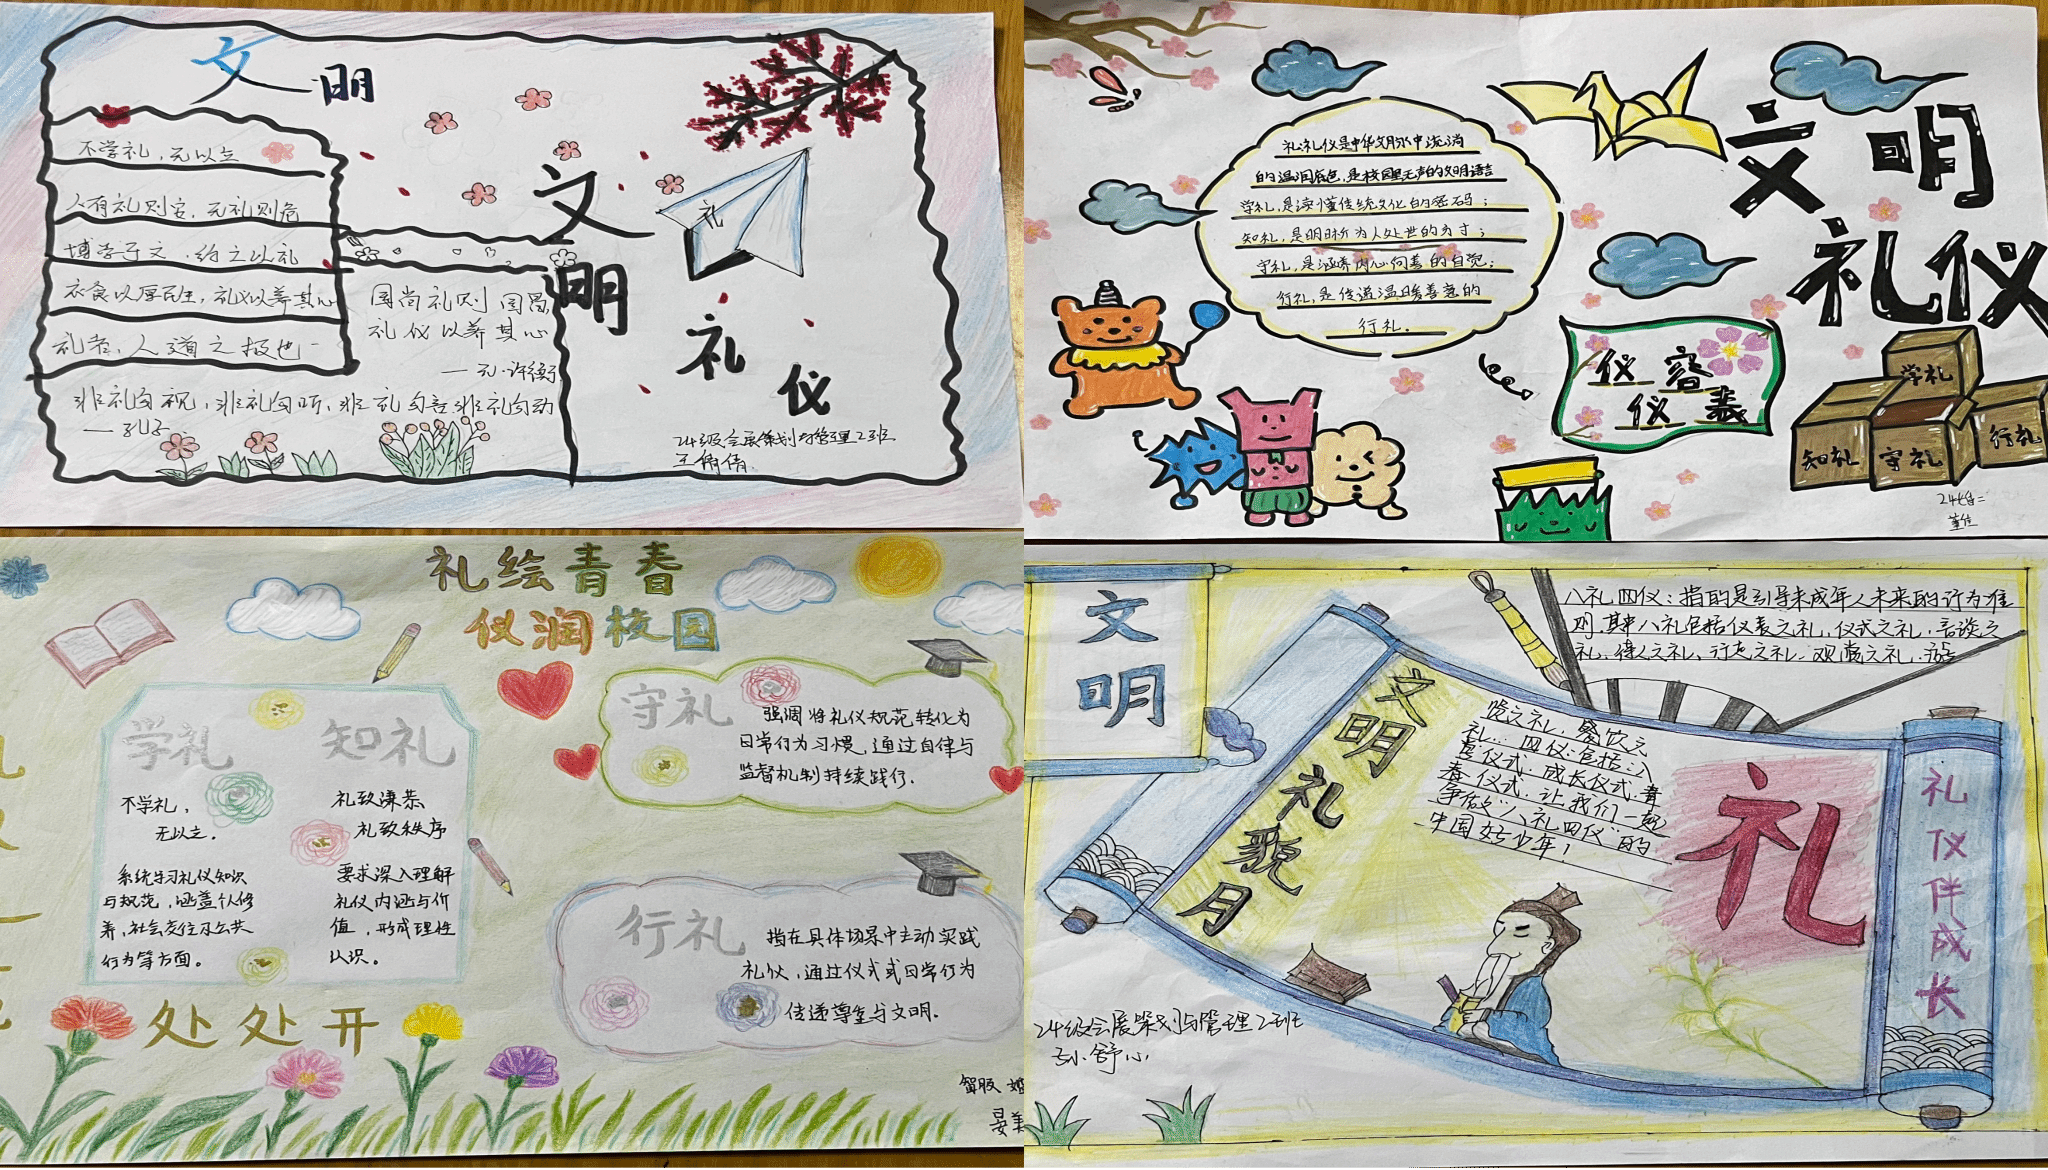 文明
不学礼，无以立
人有礼则安，无礼则危
博学于文，约之以礼
衣食以厚民生，礼义以养其心
礼者，人道之极也
非礼勿视，非礼勿听，非礼勿言，非礼勿动
——孔子
国尚礼则国昌
礼仪以养其心
——元·许衡
文明
礼仪
礼
24级会展策划与管理2班
王倩倩
礼礼仪是中华文脉中流淌
的温润底色，是校园里无声的文明语言
学礼，是读懂传统文化的密码；
知礼，是明晰为人处世的方寸；
守礼，是涵养内心向善的自觉；
行礼，是传递温暖善意的
行礼。
文明
礼仪
仪容
仪表
学礼
知礼
守礼
行礼
礼绘青春
仪润校园
学礼
不学礼，
无以立。
系统学习礼仪知识
与规范，涵盖个人修
养，社会交往及公共
行为等方面。
知礼
礼致谦恭
礼致秩序
要求深入理解
礼仪内涵与价
值，形成理性
认识。
守礼
强调将礼仪规范转化为
日常行为习惯，通过自律与
监督机制持续践行。
行礼
指在具体场景中主动实践
礼仪，通过仪式或日常行为
传递尊重与文明。
处处开
文明
八礼四仪：指的是引导未成年人未来的行为准
则，其中八礼包括仪表之礼，仪式之礼，言谈之
礼、待人之礼、行走之礼、观赏之礼、游
览之礼，餐饮之
礼… 四仪：包括：入
学仪式，成长仪式，青
春仪式，让我们一起
争做"八礼四仪"的
中国好少年！
文明礼貌月
礼
礼仪伴成长
24级会展策划与管理2班
孙舒心